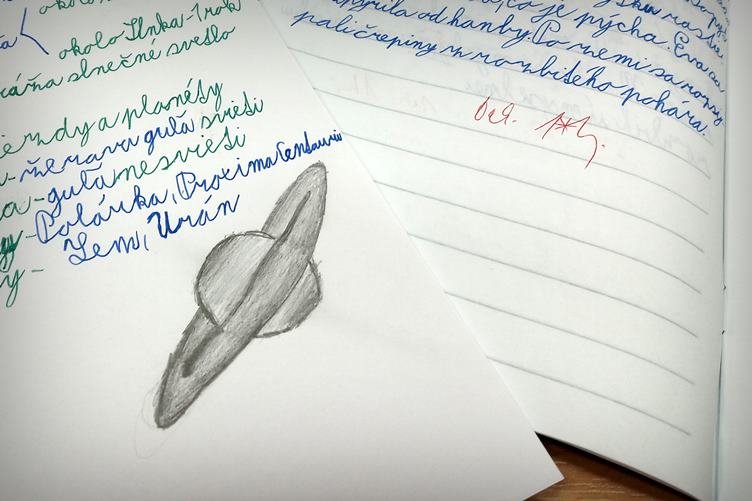 okolo Slnka-1rok
slnečné svetlo
a planéty
-žeravá guľa svieti
-guľa nesvieti
-Polárka, Proxima Centauri
-Zem, Urán
čo je pýcha. Eva sa
od hanby. Po zemi sa rozsy
pali črepiny z rozbitého pohára.